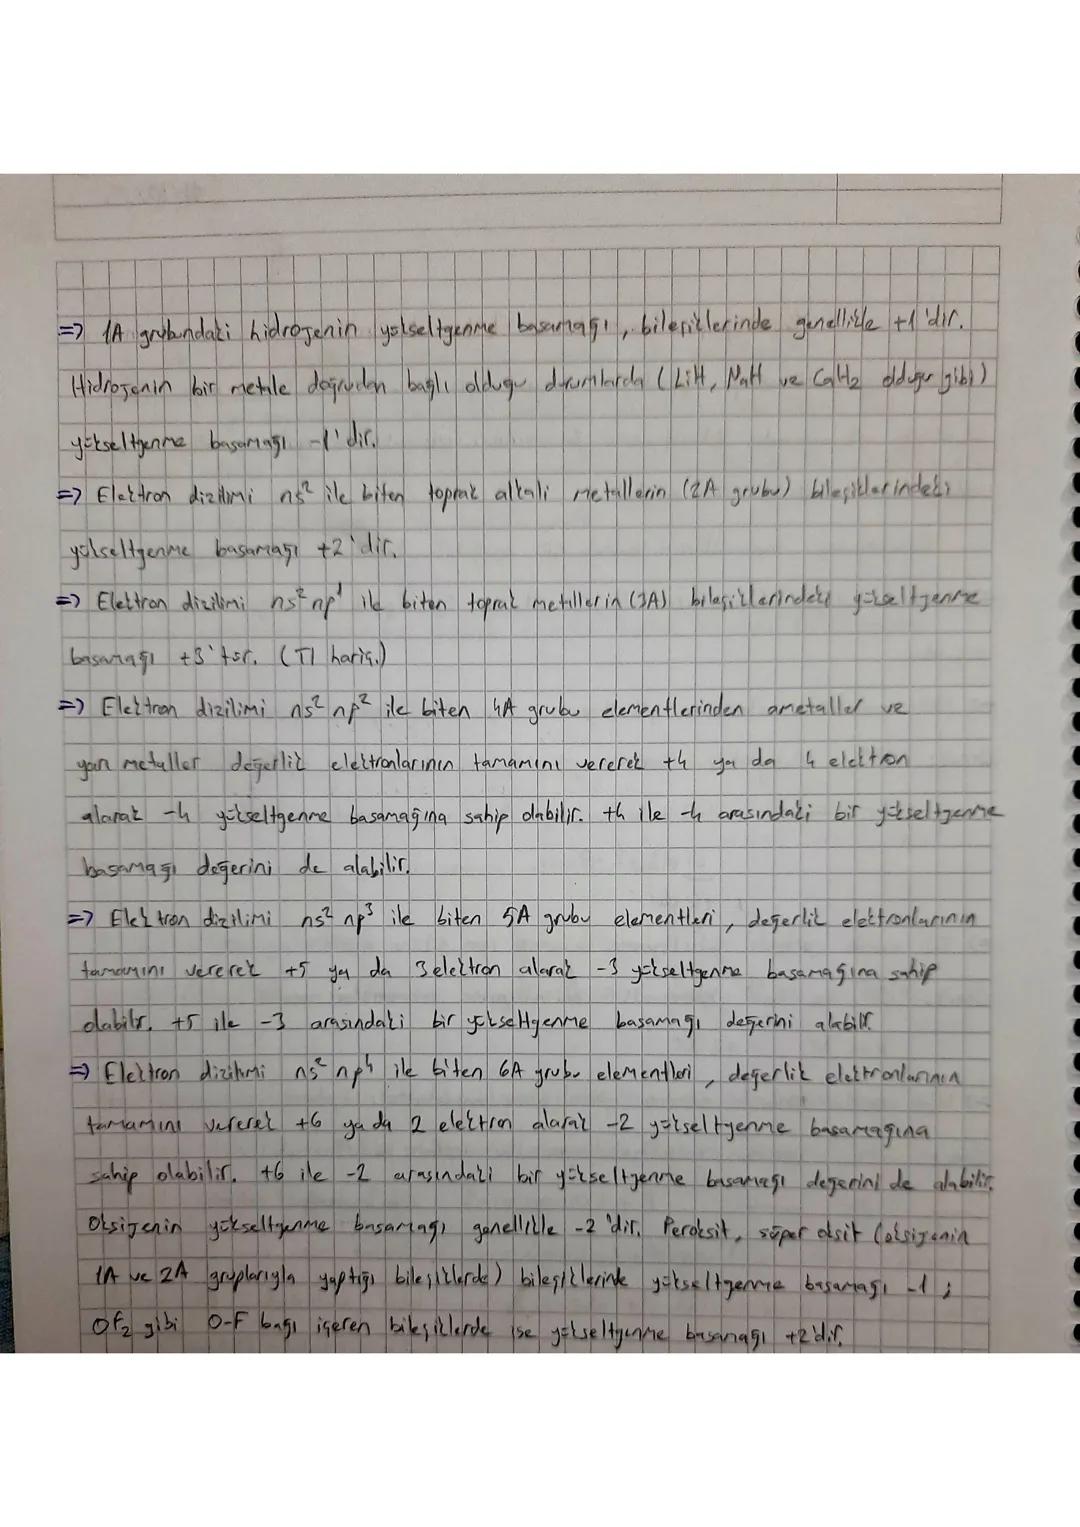 => 1A grubundaki hidrojenin yükseltgenme basamağı, bileşiklerinde genellikle +1'dir.
Hidrojenin bir metale doğrudan bağlı olduğu durumlarda (LiH, NaH ve CaH₂ olduğu gibi)
yükseltgenme basamağı -1'dir.
=> Elektron dizilimi ns² ile biten toprak alkali metallerin (2A grubu) bileşiklerindeki
yükseltgenme basamağı +2'dir.
=> Elektron dizilimi ns² np¹ ile biten toprak metallerin (3A) bileşiklerindeki yükseltgenme
basamağı +3'tür. (Tl hariç.)
=> Elektron dizilimi ns² np² ile biten 4A grubu elementlerinden ametaller ve
yarı metaller değerlik elektronlarının tamamını vererek +4 ya da 4 elektron
alarak -4 yükseltgenme basamağına sahip olabilir. +4 ile -4 arasındaki bir yükseltgenme
basamağı değerini de alabilir.
=> Elektron dizilimi ns² np³ ile biten 5A grubu elementleri, değerlik elektronlarının
tamamını vererek +5 ya da 3 elektron alarak -3 yükseltgenme basamağına sahip
olabilir. +5 ile -3 arasındaki bir yükseltgenme basamağı değerini alabilir.
=> Elektron dizilimi ns² np⁴ ile biten 6A grubu elementleri, değerlik elektronlarının
tamamını vererek +6 ya da 2 elektron alarak -2 yükseltgenme basamağına
sahip olabilir. +6 ile -2 arasındaki bir yükseltgenme basamağı değerini de alabilir.
Oksijenin yükseltgenme basamağı genellikle -2'dir. Peroksit, süper oksit (oksijenin
1A ve 2A gruplarıyla yaptığı bileşiklerde) bileşiklerinde yükseltgenme basamağı -1;
OF₂ gibi O-F bağı içeren bileşiklerde ise yükseltgenme basamağı +2'dir.